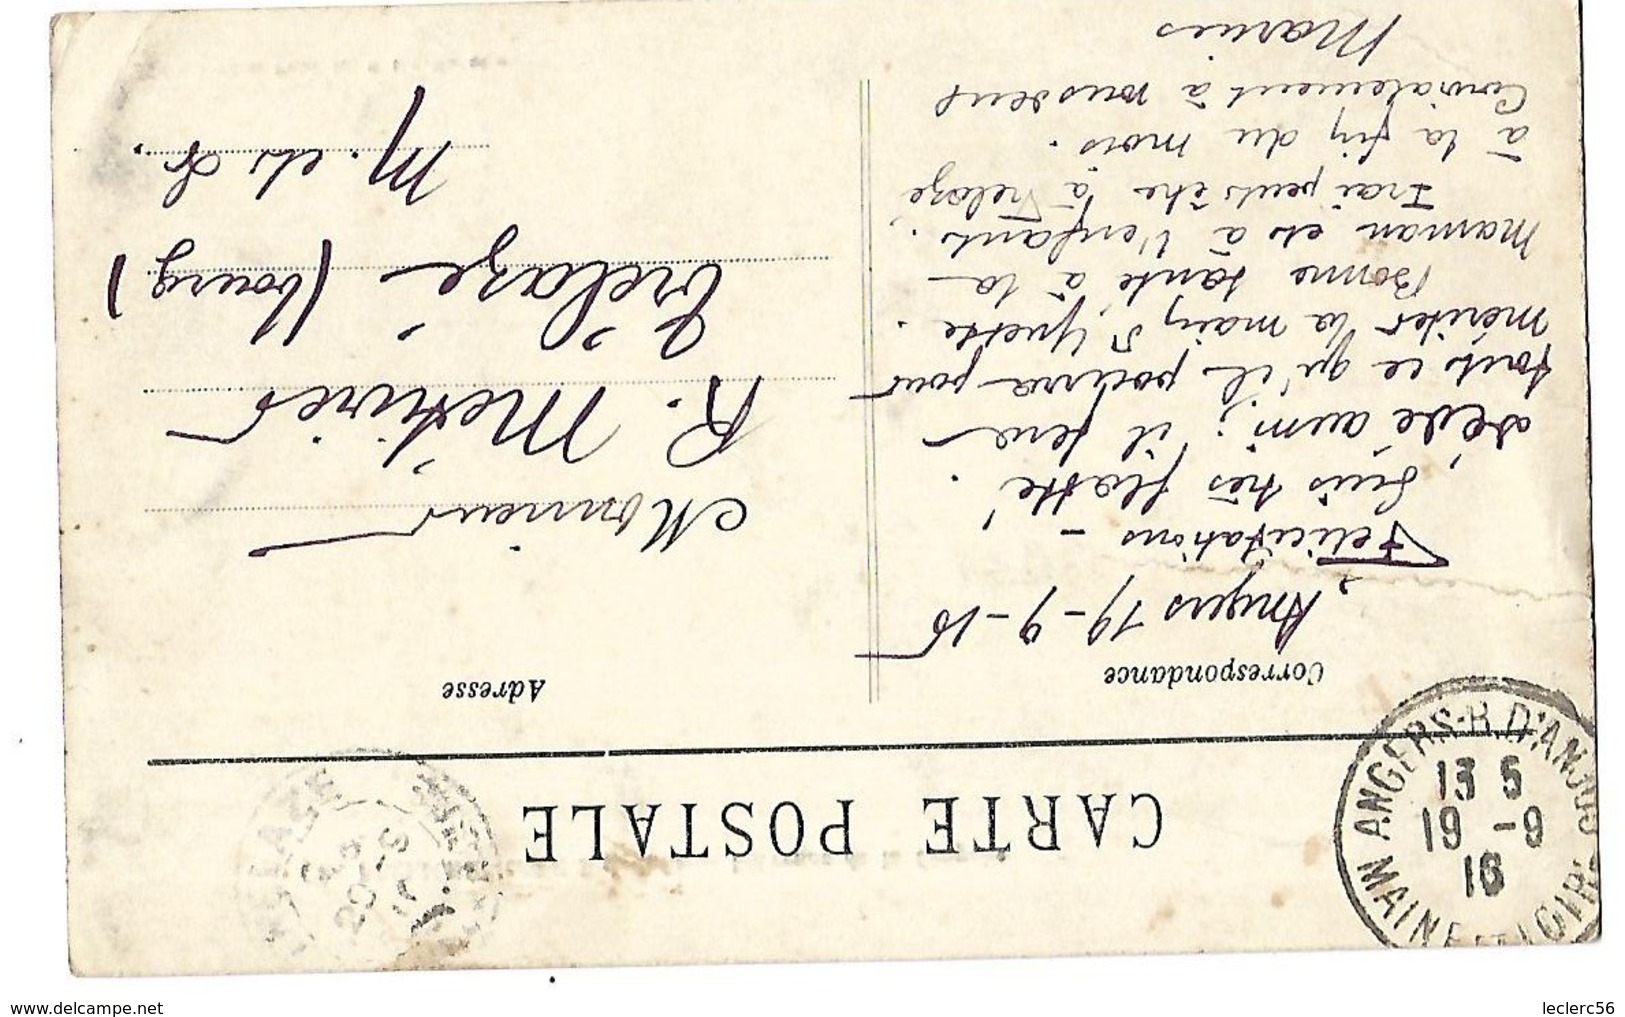 CARTE POSTALE
Correspondance
Adresse
Angers 19-9-16
Félicitations -
Suis très flatté.
Dédé aussi; il fera
tout ce qu'il pourra pour
mériter la main d'Yvette.
Bonne santé à la
Maman et à l'enfant.
Irai peut être à Trelazé
à la fin du mois.
Cordialement à vous deux
Monsieur
R. Métivier
Trélazé (bourg)
M. et L.
ANGERS-R. D'ANJOU
13 5
19 -9
16
MAINE-ET-LOIRE
20-9
delcampe.net
leclerc56